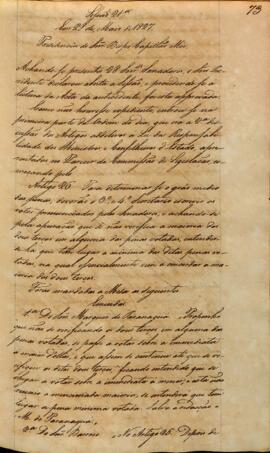 73
Sessão 21ª
Em 29 de Maio de 1827.
Presidencia do Sñr. Bispo Capellão Mór.
Achando-se presentes 28 Snrˢ. Senadores, o Sñr. Pre-
sidente declarou aberta a Sessão, e procedendo-se á
leitura da Acta da antecedente, foi esta approvada.
Como não houvesse expediente, entrou-se na
primeira parte da Ordem do dia, que era a
dos Artigos additivos á Lei da Responsabi-
lidade dos Ministros e Conselheiros d'Estado, apre-
sentados no Parecer da Commissão de Legislação, co-
meçando pelo
Artigo 25 Para determinar-se o gráo medio
das penas, deverão o 3º e 4º Secretarios escrever os
votos pronunciados pelos Senadores, e achando-se
pela apuração que se não verifica a maioria dos
dous terços em alguma das penas votadas, entender-
se-ha que teve lugar a minima das ditas penas vo-
tadas, na qual essencialmente vem a concordar a maio-
ria dos dous terços.
Forão mandadas á Mesa as seguintes
Emendas
1ª Do Sñr. Marquez de Paranaguá. Proponho
que não se verificando os dous terços em alguma das
penas votadas, se passe a votar sobre a immediata
e assim se continue até que se ve-
rifiquem os ditos dous terços, ficando entendido que se
chegar a votar sobre a immediata á menor, e esta não
reunir a mencionada maioria, se entenderá que tem
lugar a pena minima votada. Salva a redacção.
M. de Paranaguá.
2ª Do Sñr. Barroso No Artigo 25. Depois de